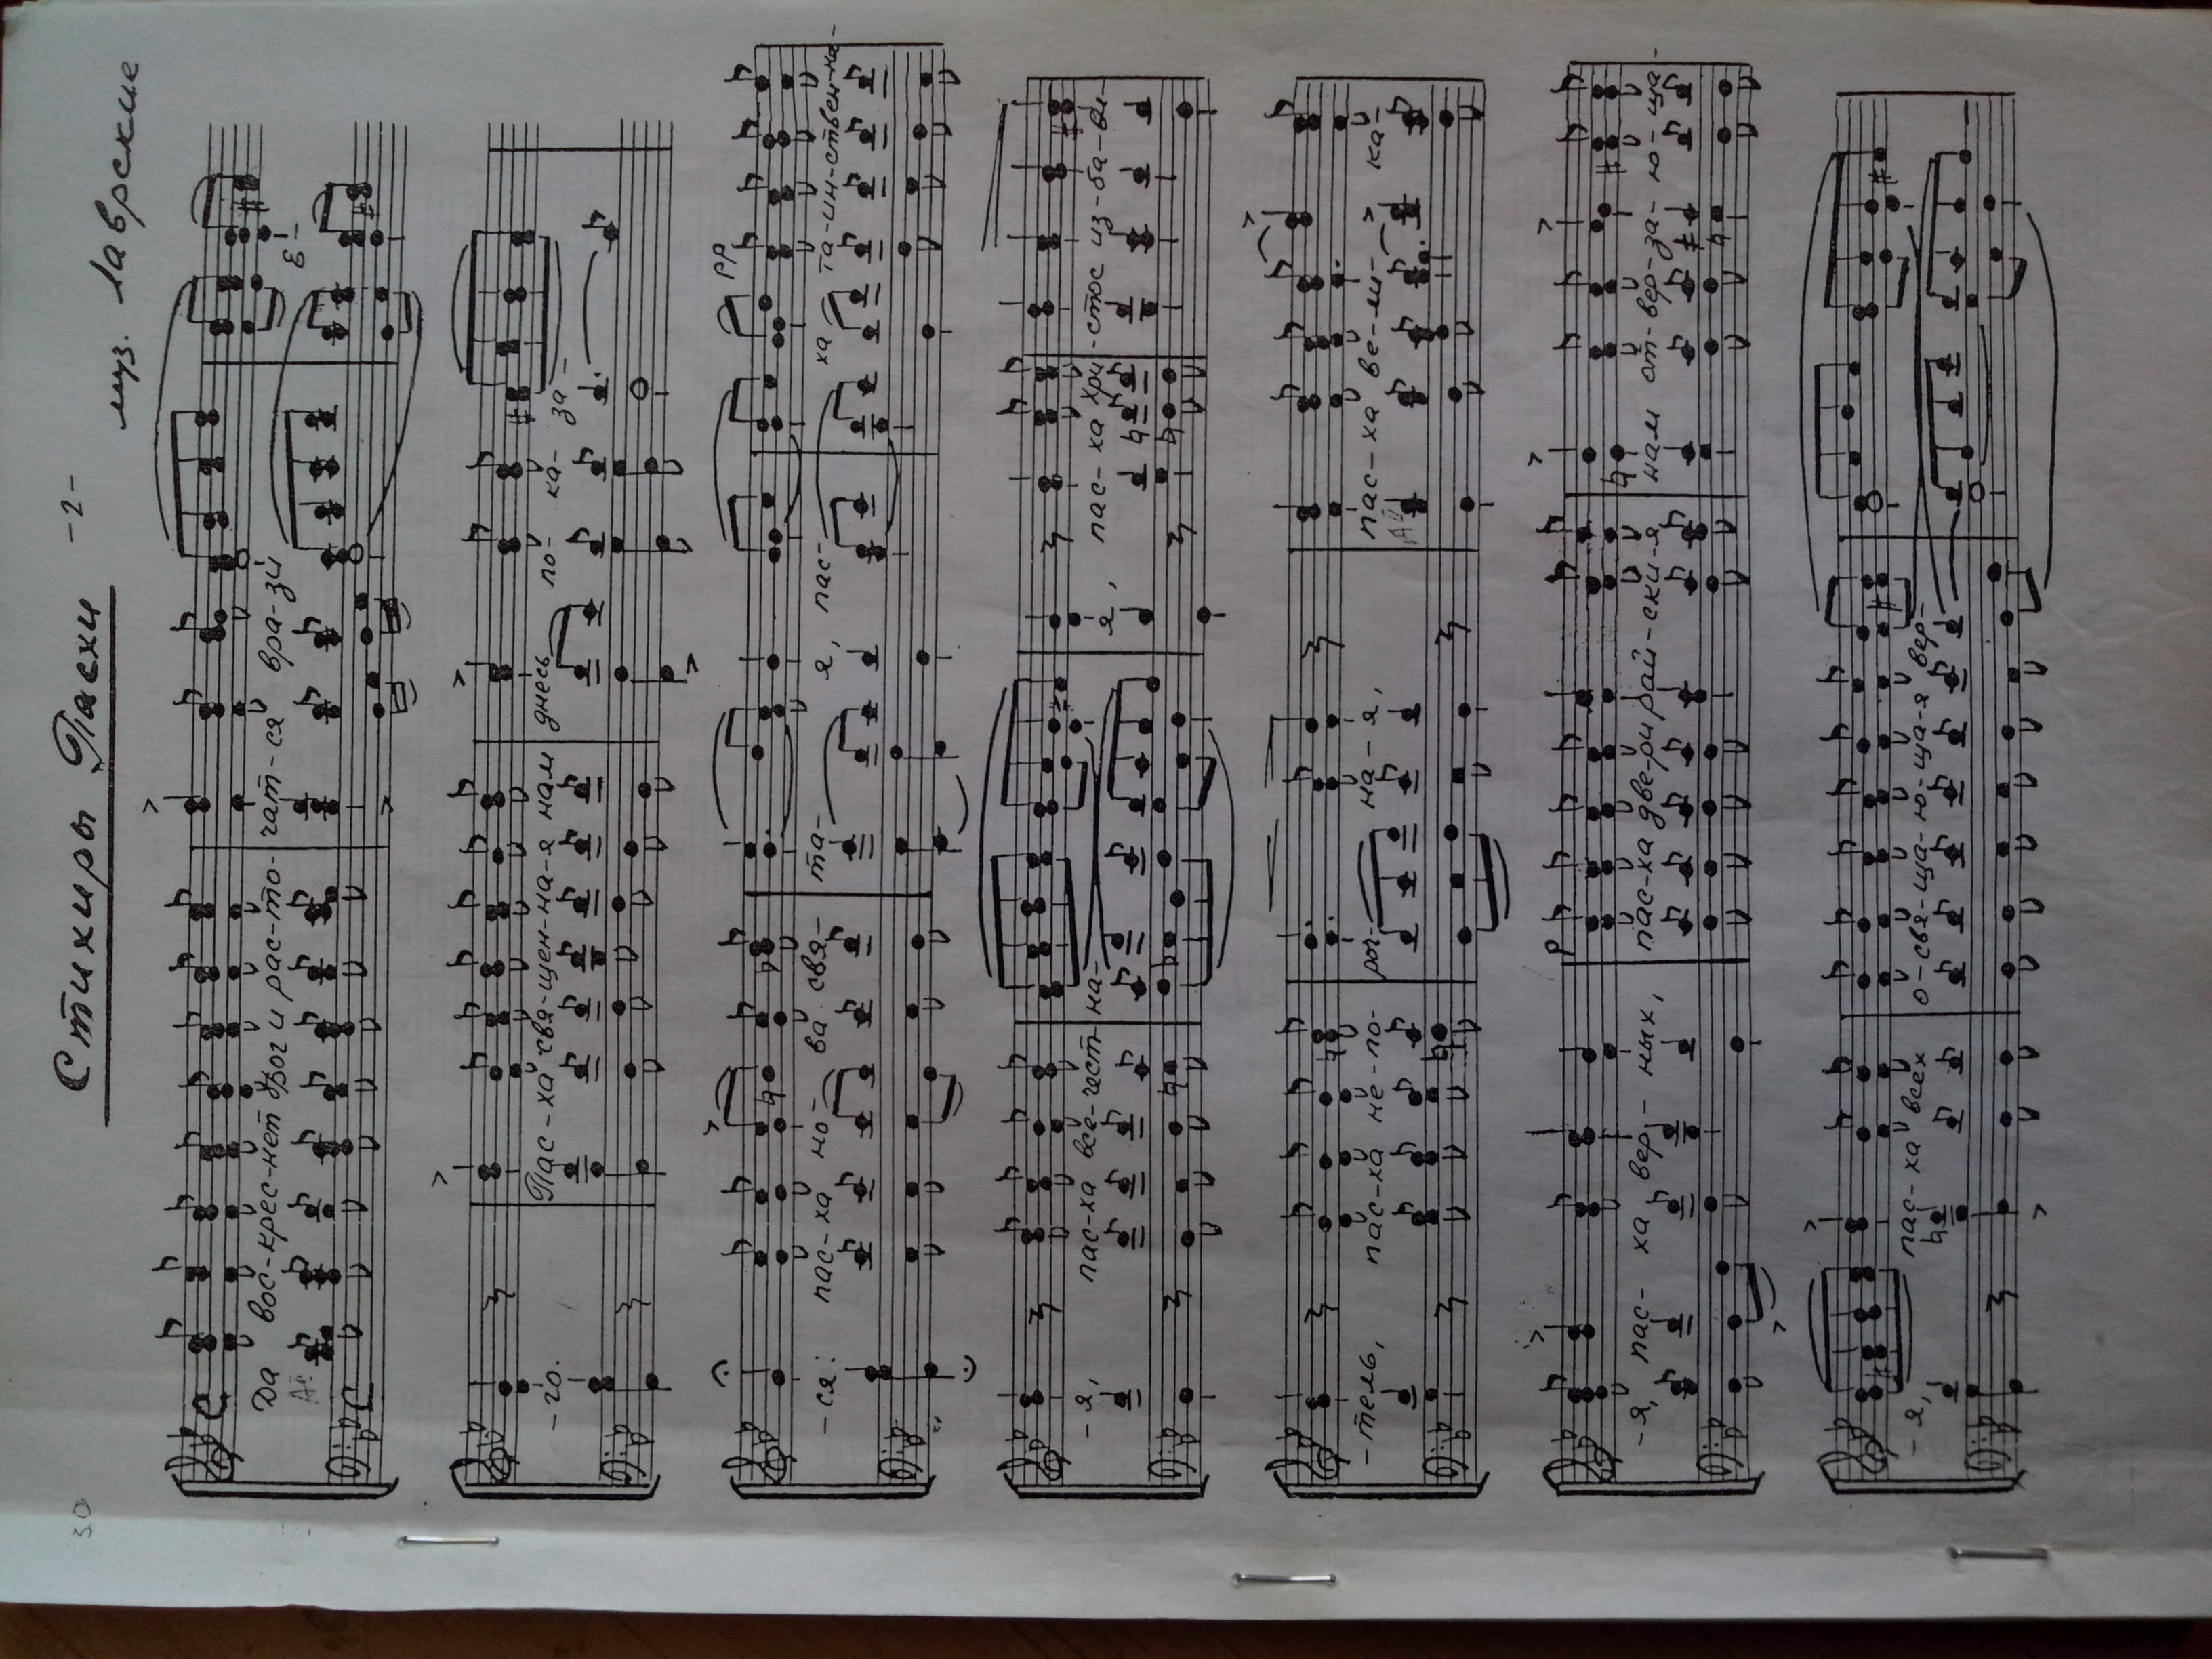 30
Стихиры Пасхи -2-
муз. Лаврские
Да вос-крес-нет Бог и рас-то-чат-ся вра-зи Е-
-го. Пас-ха свя-щен-на-я нам днесь по-ка-за-
pp
-ся: пас-ха но-ва свя-та-я, пас-ха та-ин-ствен-на-
-я, пас-ха все-чест-на-я, пас-ха Хри-стос из-ба-ви-
-тель, пас-ха не-по-роч-на-я, пас-ха ве-ли-ка-
p
-я, пас-ха вер-ных, пас-ха две-ри рай-ски-я нам от-вер-за-ю-ща-
-я, пас-ха всех о-свя-ща-ю-ща-я вер-